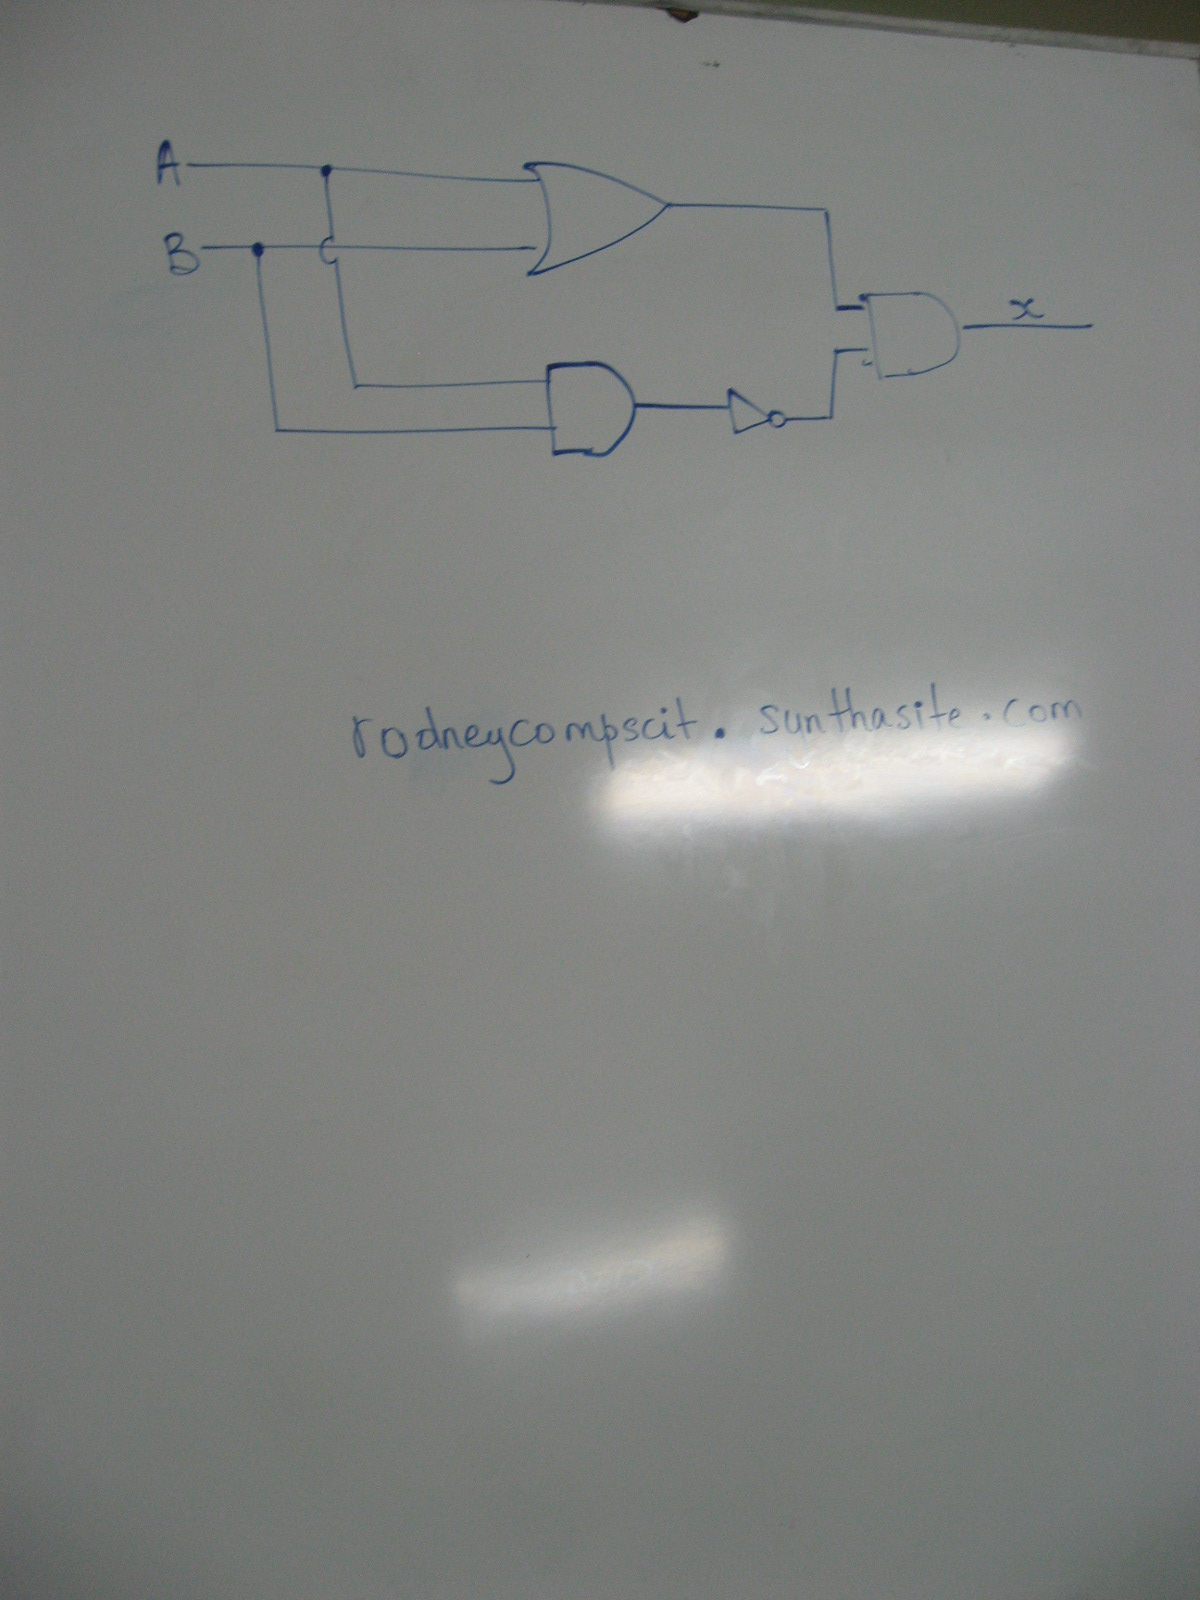 A
B
x
rodneycompscit. sunthasite.com